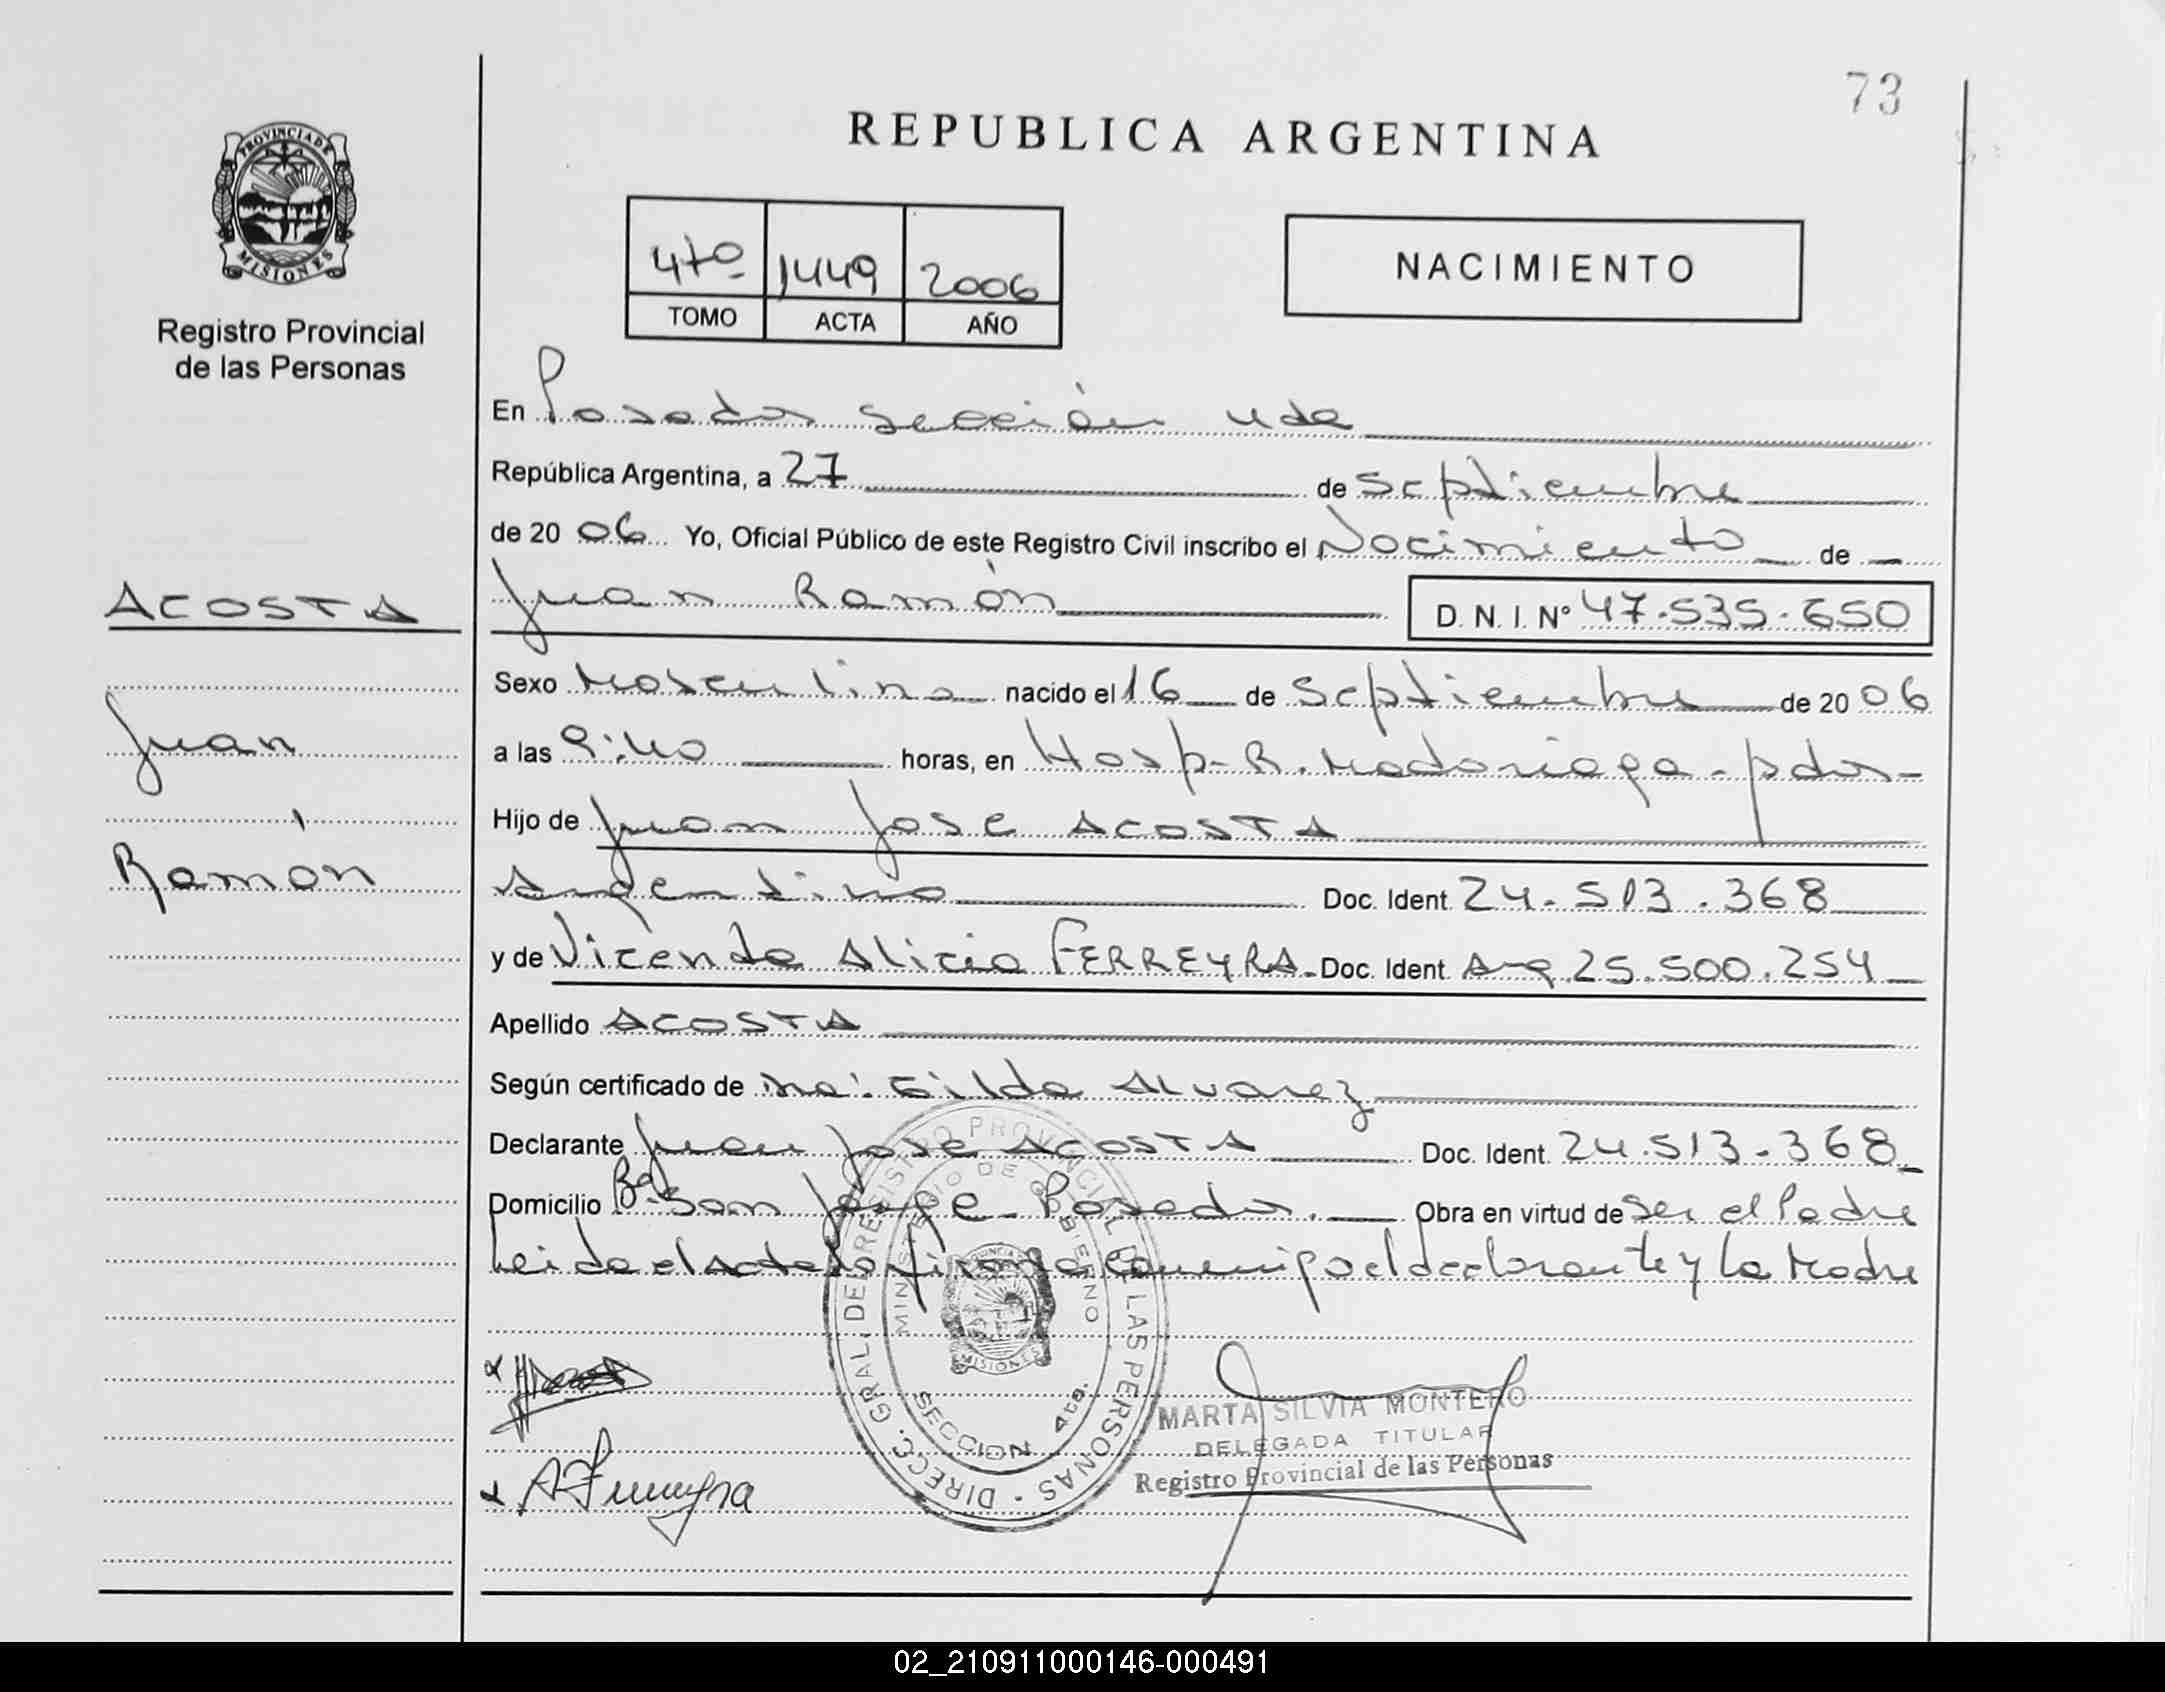 73
REPUBLICA ARGENTINA
PROVINCIA DE MISIONES
Registro Provincial
de las Personas
4to 1449 2006
TOMO ACTA AÑO
NACIMIENTO
En Posadas Sección 4ta
República Argentina, a 27 de Septiembre
de 2006 Yo, Oficial Público de este Registro Civil inscribo el Nacimiento de
ACOSTA
Juan
Ramón
Juan Ramón D. N. I. Nº 47.535.650
Sexo Masculino nacido el 16 de Septiembre de 2006
a las 9:40 horas, en Hosp. R. Madariaga - pdas -
Hijo de Juan Jose ACOSTA
Argentino Doc. Ident. 24.513.368
y de Vicenta Alicia FERREYRA - Doc. Ident. Arg. 25.500.254
Apellido ACOSTA
Según certificado de Gilda Alvarez
Declarante Juan Jose ACOSTA Doc. Ident. 24.513.368
Domicilio Bº San Jorge - Posadas. Obra en virtud de Ser el Padre
Leida el acta la firma conmigo el declarante y la Madre
DIRECC. GRAL. DEL REGISTRO PROVINCIAL DE LAS PERSONAS
MINISTERIO DE GOBIERNO
PROVINCIA DE MISIONES
SECCION 4ta.
MARTA SILVIA MONTERO
DELEGADA TITULAR
Registro Provincial de las Personas
A Ferreyra
02_210911000146-000491